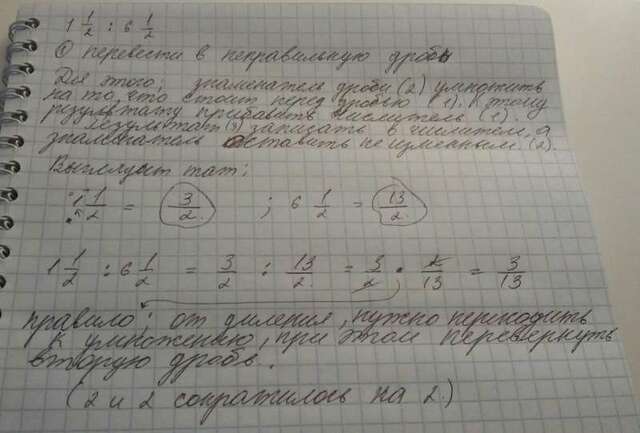 1 1/2 : 6 1/2
① перевести в неправильную дробь
Для этого: знаменатель дроби (2) умножить
на то, что стоит перед дробью (1). К этому
результату прибавить числитель (1).
Результат (3) записать в числителе, а
знаменатель оставить неизменным (2).
Выглядит так:
1 1/2 = 3/2 ; 6 1/2 = 13/2
1 1/2 : 6 1/2 = 3/2 : 13/2 = 3/2 · 2/13 = 3/13
правило: от диления, нужно переходить
к умножению, при этом перевернуть
вторую дробь.
(2 и 2 сократилось на 2.)